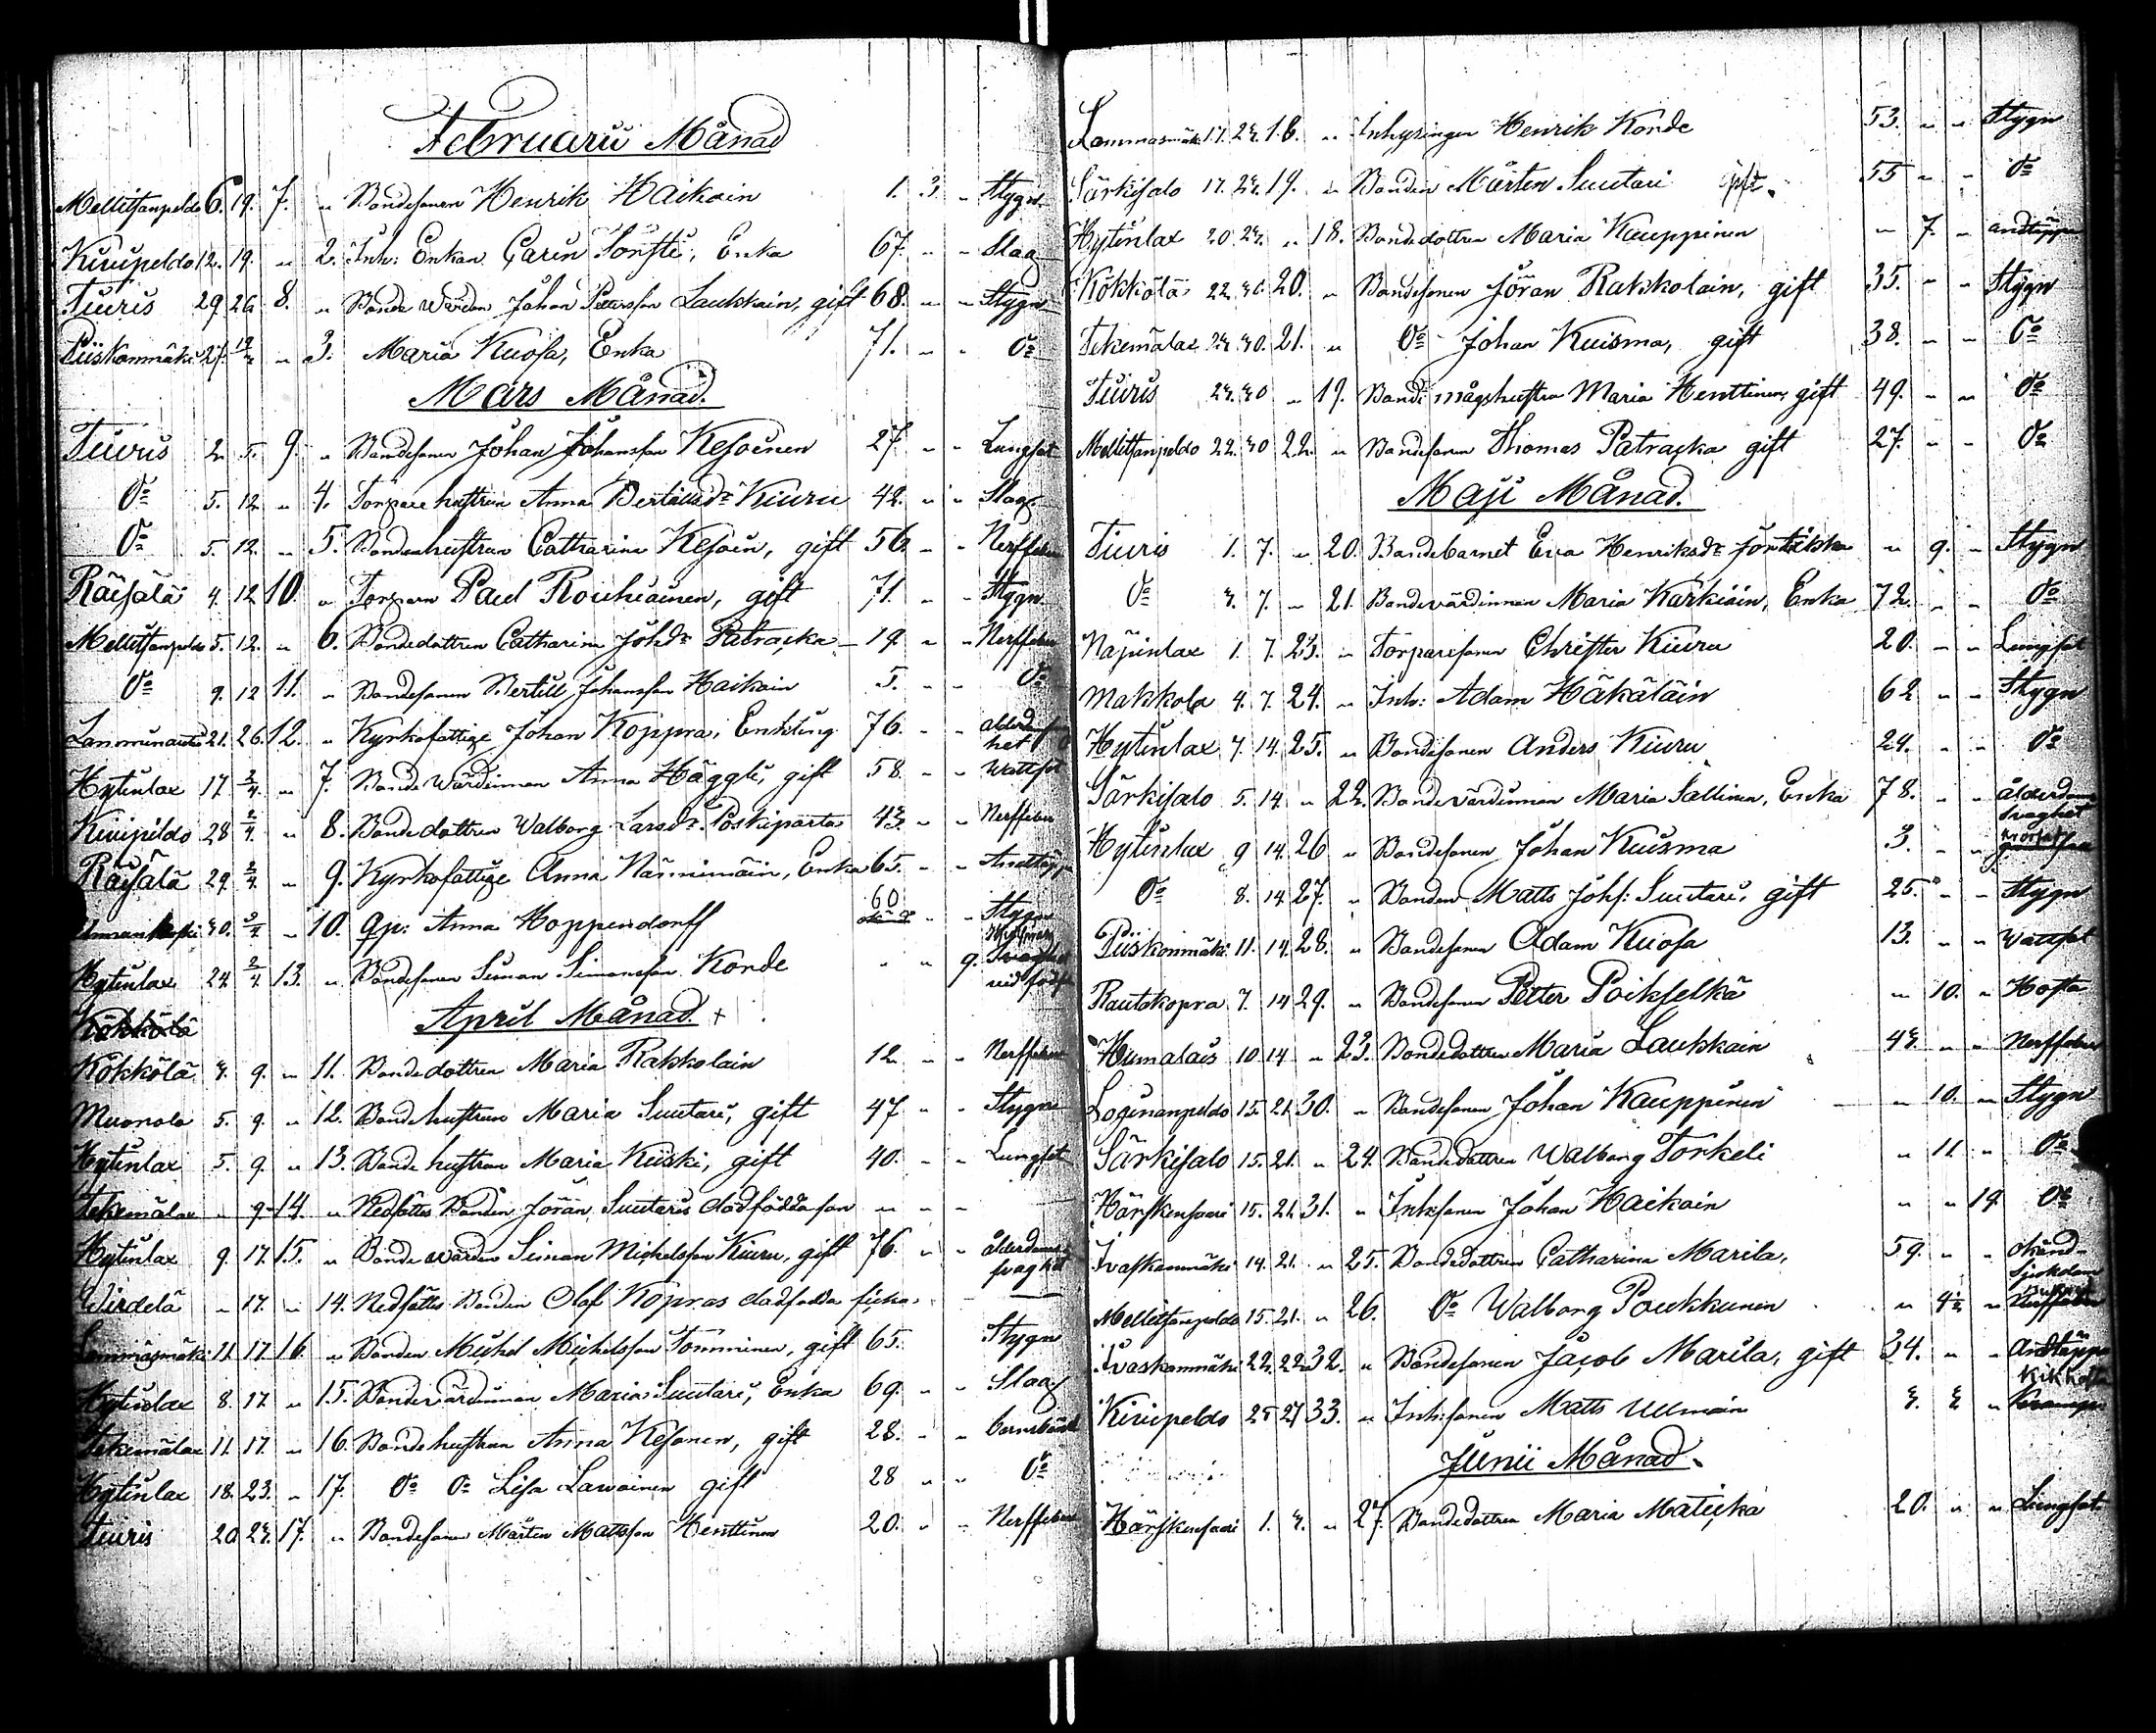 Februarii Månad
Mellitsanpeldo 6. 19. 7. " Bondesonen Henrik Haikain 1. 3. " Stygn
Kiuipeldo 12. 19. " 2. Inh: Enkan Carin Torsti, Enka 67. " " Slag
Tiuris 29 26 8. " Bonde Wärden Johan Pettersson Laukkain, gift 68. " " Stygn
Piiskonmäki 27. " 3. Maria Kuosa, Enka 71. " " Do
Mars Månad.
Tiuris 2. 5. 9. " Bondesonen Johan Johansson Kesoinen 27 " " Lungsot
Do 5. 12. " 4. Torpare hustrun Anna Bertilsdr Kiuru 42. " " Slag
Do 5. 12. " 5. Bondenhustrun Catharina Kesoin, gift 56 " " Nerffeber
Räisälä 4. 12 10. " Torparn Paul Rouhiainen, gift 71. " " Stygn
Mellitsanpeldo 5. 12. " 6. Bondedottren Catharina Johdr Patracka 19. " " Nerffeber
Do 9. 12 11. " Bondesonen Bertill Johansson Haikain 5. " " Do
21. 26. 12. " Kyrkofattige Johan Koppra, Enkling 76. " " ålderdoms
het
Hytinlax 17 2/4 " 7. Bonde Wärdinnan Anna Häggli, gift 58. " " Wattsot
Kiuipildo 28 2/4 " 8. Bondedottren Walborg Larsdr Poskiparta 43. " " Nerffeber
Räisälä 29. 2/4 " 9. Kyrkofattige Anna Nännimäin, Enka 65. " " Andtäppa
30. " 10. qp: Anna Hoppendorff 60 " " Stygn
Hytinlax 24 2/4 13. " Bondesonen Simon Simonsson Korde " " 9. Svaghet
ved föds
April Månad. +
Kökkölä 3. 9. " 11. Bondedottren Maria Rakkolain 12 " " Nerffeber
Muonola 5. 9. " 12. Bondehustrun Maria Suutari, gift 47 " " Stygn
Hytinlax 5. 9. " 13. Bonde hustrun Maria Kiiski, gift 40. " " Lungsot
Tekemälax " 9. 14. " Nedsattes Bonden Jöran Suutaris dödfödda son " " "
Hytinlax 9. 17. 15. " Bonde wärden Simon Michelsson Kiuru, gift 76. " " ålderdoms
svaghet
Wirdelä " 17. " 14. Nedsattes Bonden Olof Kopras dödfödda ficka.
Lammasmäki 11. 17. 16. " Bonden Michel Michelsson Tomminen, gift 65. Stygn
Hytinlax 8. 17. " 15. Bondevärdinnan Maria Suutari, Enka 69. " " Slag
Tekemälax 11. 17. " 16. Bondehustrun Anna Kesonen, gift 28. " " barnsbörd
Hytinlax 18. 23. " 17. Do Do Lisa Lawainen gift 28 " " Do
Tiuris 20 23. 17. " Bondesonen Mårten Matsson Henttinen 20. " " Nerffeber
Lammasmäki 17. 23. 16. " Inhysingen Henrik Korde 53. " " Stygn
Särkisalo 17. 23. 19. " Bonden Mårten Suutari gift. 55 " " Do
Hytinlax 20 23. " 18. Bondedottren Maria Kauppinen " 7. " andtäppa
Kökkölä 22. 30. 20. " Bondesonen Jöran Rakkolain, gift 35. " " Stygn
Tekemälax 23. 30. 21. " Do Johan Kuisma, gift 38. " " Do
Tiuris 23. 30 " 19. Bonde mågshustru Maria Henttinen, gift 49. " " Do
Mellitsanpeldo 22. 30 22. " Bondesonen Thomas Patracka gift 27. " " Do
Maji Månad.
Tiuris 1. 7. " 20. Bondebarnet Eva Henriksdr Jontikka " 9. " Stygn
Do 3. 7. " 21. Bondevärdinnan Maria Karkiain, Enka 72. " " Do
Näpinlax 1. 7. 23. " Torparesonen Christer Kiuru 20. " " Lungsot
Makkola 4. 7. 24. " Inh: Adam Häkäläin 62 " " Stygn
Hytinlax 7. 14. 25. " Bondesonen Anders Kiuru 24. " " Do
Särkisalo 5. 14. " 22. Bondevärdinnan Maria Sallinen, Enka 78. " " ålderdoms
svaghet
Hytinlax 9 14. 26 " Bondesonen Johan Kuisma 3. " "
Do 8. 14. 27. " Bonden Matts Johs: Suutari, gift 25. " " Stygn
Piiskonmäki 11. 14. 28. " Bondesonen Adam Kuosa 13. " " Wattsot
Rautokopra 7. 14 29. " Bondesonen Petter Poikselkä " 10. " Hosta
Humalais 10 14. " 23. Bondedottren Maria Laukkain 43. " " Nerffeber
Loginanpeldo 15. 21. 30. " Bondesonen Johan Kauppinen " 10. " Stygn
Särkisalo 15. 21. " 24. Bondedottren Walborg Torkeli " 11. " Do
Härskensaari 15. 21. 31. " Inh:sonen Johan Haikain " " 19. Do
Ivaskanmäki 14. 21. " 25. Bondedottren Catharina Marila, 59. " " okänd
Sjukdom
Mellitsanpeldo 15. 21. " 26. Do Walborg Poukkunen " 4½ " Nerffeber
Ivaskanmäki 22. 22. 32. " Bondesonen Jacob Marila, gift 34. " " Andtäppa
Kikhosta
Kiuipeldo 25 27 33. " Inh:sonen Matts Ullmain 3. 3 "
Junii Månad.
Härskensaari 1. 3. " 27. Bondedottren Maria Maticka 20. " " Lungsot.